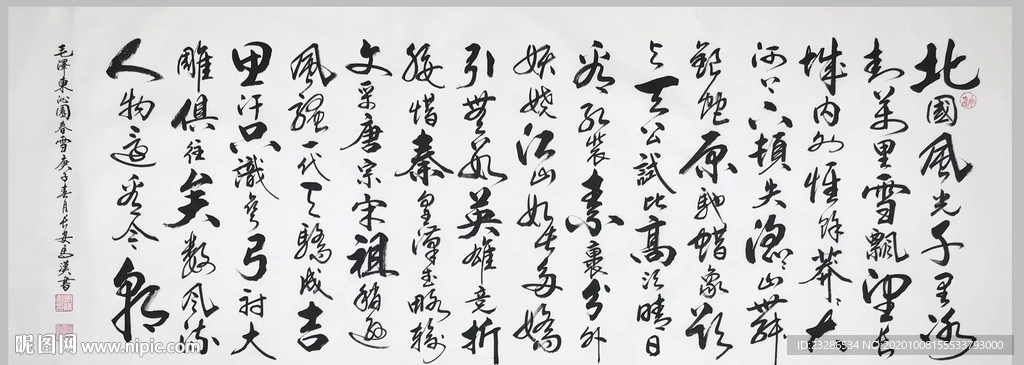 北國風光千里冰
封萬里雪飄望長
城内外惟餘莽莽大
河上下頓失滔滔山舞
銀蛇原馳蜡象欲
与天公試比高須晴日
看紅裝素裹分外
妖嬈江山如此多嬌
引無數英雄竞折
腰惜秦皇漢武略輸
文采唐宗宋祖稍遜
風騷一代天驕成吉
思汗只識彎弓射大
雕俱往矣數風流
人物還看今朝
毛澤東沁園春雪庚子春月长安馬漢書
昵图网 www.nipic.com
ID:23286534 NO:20201008155533793000